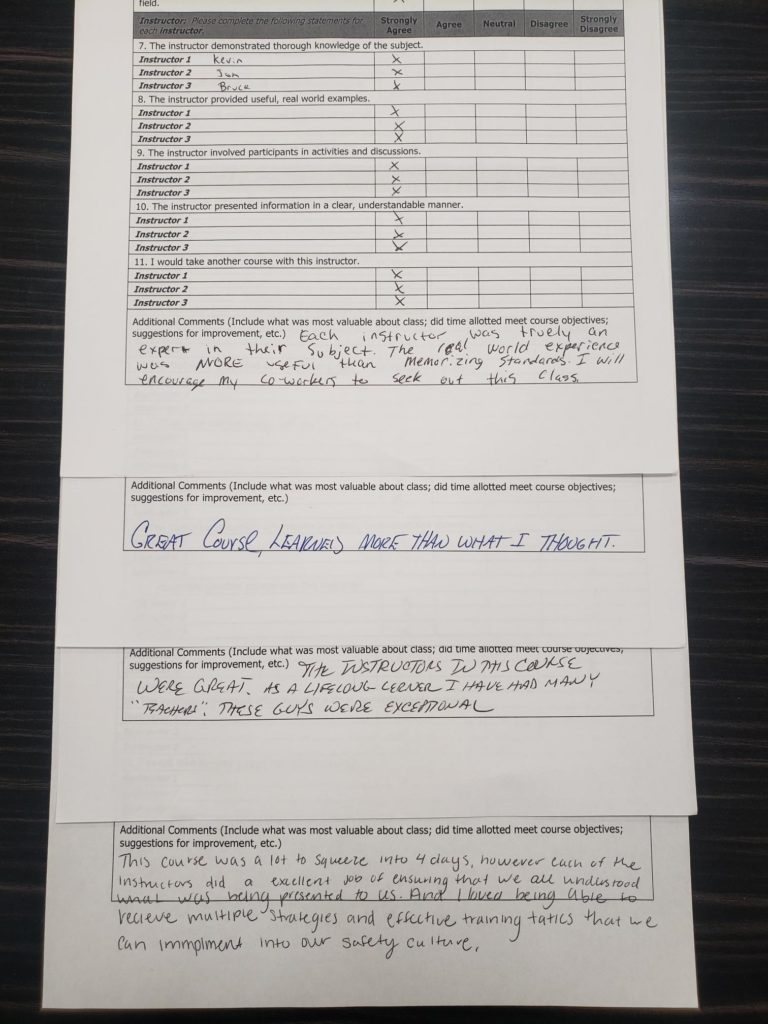 field.
Instructor: Please complete the following statements for each instructor. Strongly Agree Agree Neutral Disagree Strongly Disagree
7. The instructor demonstrated thorough knowledge of the subject.
Instructor 1 Kevin X
Instructor 2 Jon X
Instructor 3 Bruce X
8. The instructor provided useful, real world examples.
Instructor 1 X
Instructor 2 X
Instructor 3 X
9. The instructor involved participants in activities and discussions.
Instructor 1 X
Instructor 2 X
Instructor 3 X
10. The instructor presented information in a clear, understandable manner.
Instructor 1 X
Instructor 2 X
Instructor 3 X
11. I would take another course with this instructor.
Instructor 1 X
Instructor 2 X
Instructor 3 X
Additional Comments (Include what was most valuable about class; did time allotted meet course objectives;
suggestions for improvement, etc.) Each instructor was truely an
expert in their subject. The real world experience
was MORE useful than memorizing standards. I will
encourage my co-workers to seek out this class.
Additional Comments (Include what was most valuable about class; did time allotted meet course objectives;
suggestions for improvement, etc.)
GREAT COURSE, LEARNED MORE THAN WHAT I THOUGHT.
Additional Comments (Include what was most valuable about class; did time allotted meet course objectives;
suggestions for improvement, etc.) THE INSTRUCTORS IN THIS COURSE
WERE GREAT. AS A LIFELONG LERNER I HAVE HAD MANY
"TEACHERS". THESE GUYS WERE EXCEPTIONAL
Additional Comments (Include what was most valuable about class; did time allotted meet course objectives;
suggestions for improvement, etc.)
This course was a lot to squeeze into 4 days, however each of the
instructors did a excellent job of ensuring that we all understood
what was being presented to us. And I loved being able to
recieve multiple strategies and effective training tatics that we
can immplment into our safety culture.